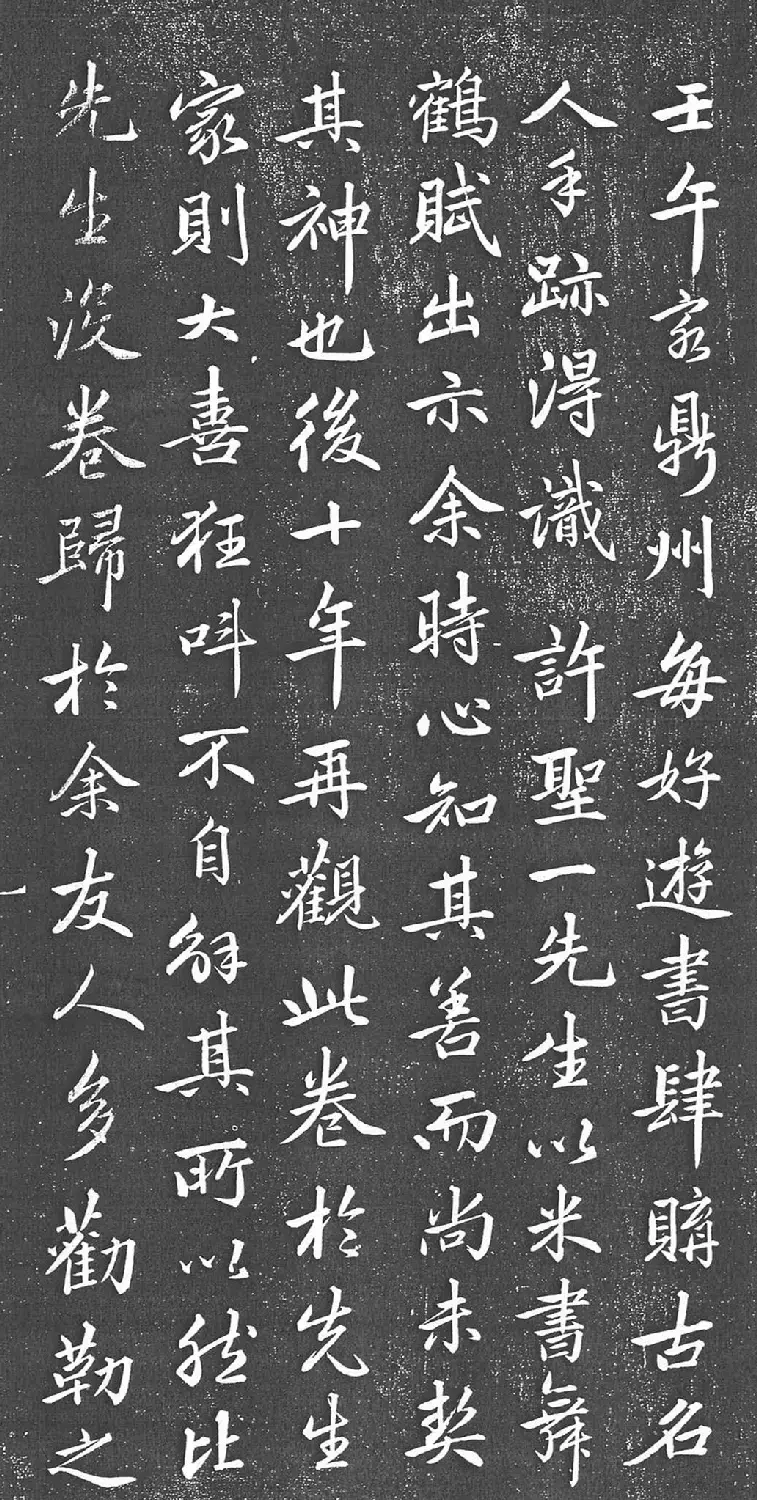 壬午客鼎州每好遊書肆購古名
人手跡得識許聖一先生以米書舞
鶴賦出示余時心知其善而尚未契
其神也後十年再觀此卷於先生
家則大喜狂呌不自解其所以然比
先生沒卷歸於余友人多勸勒之